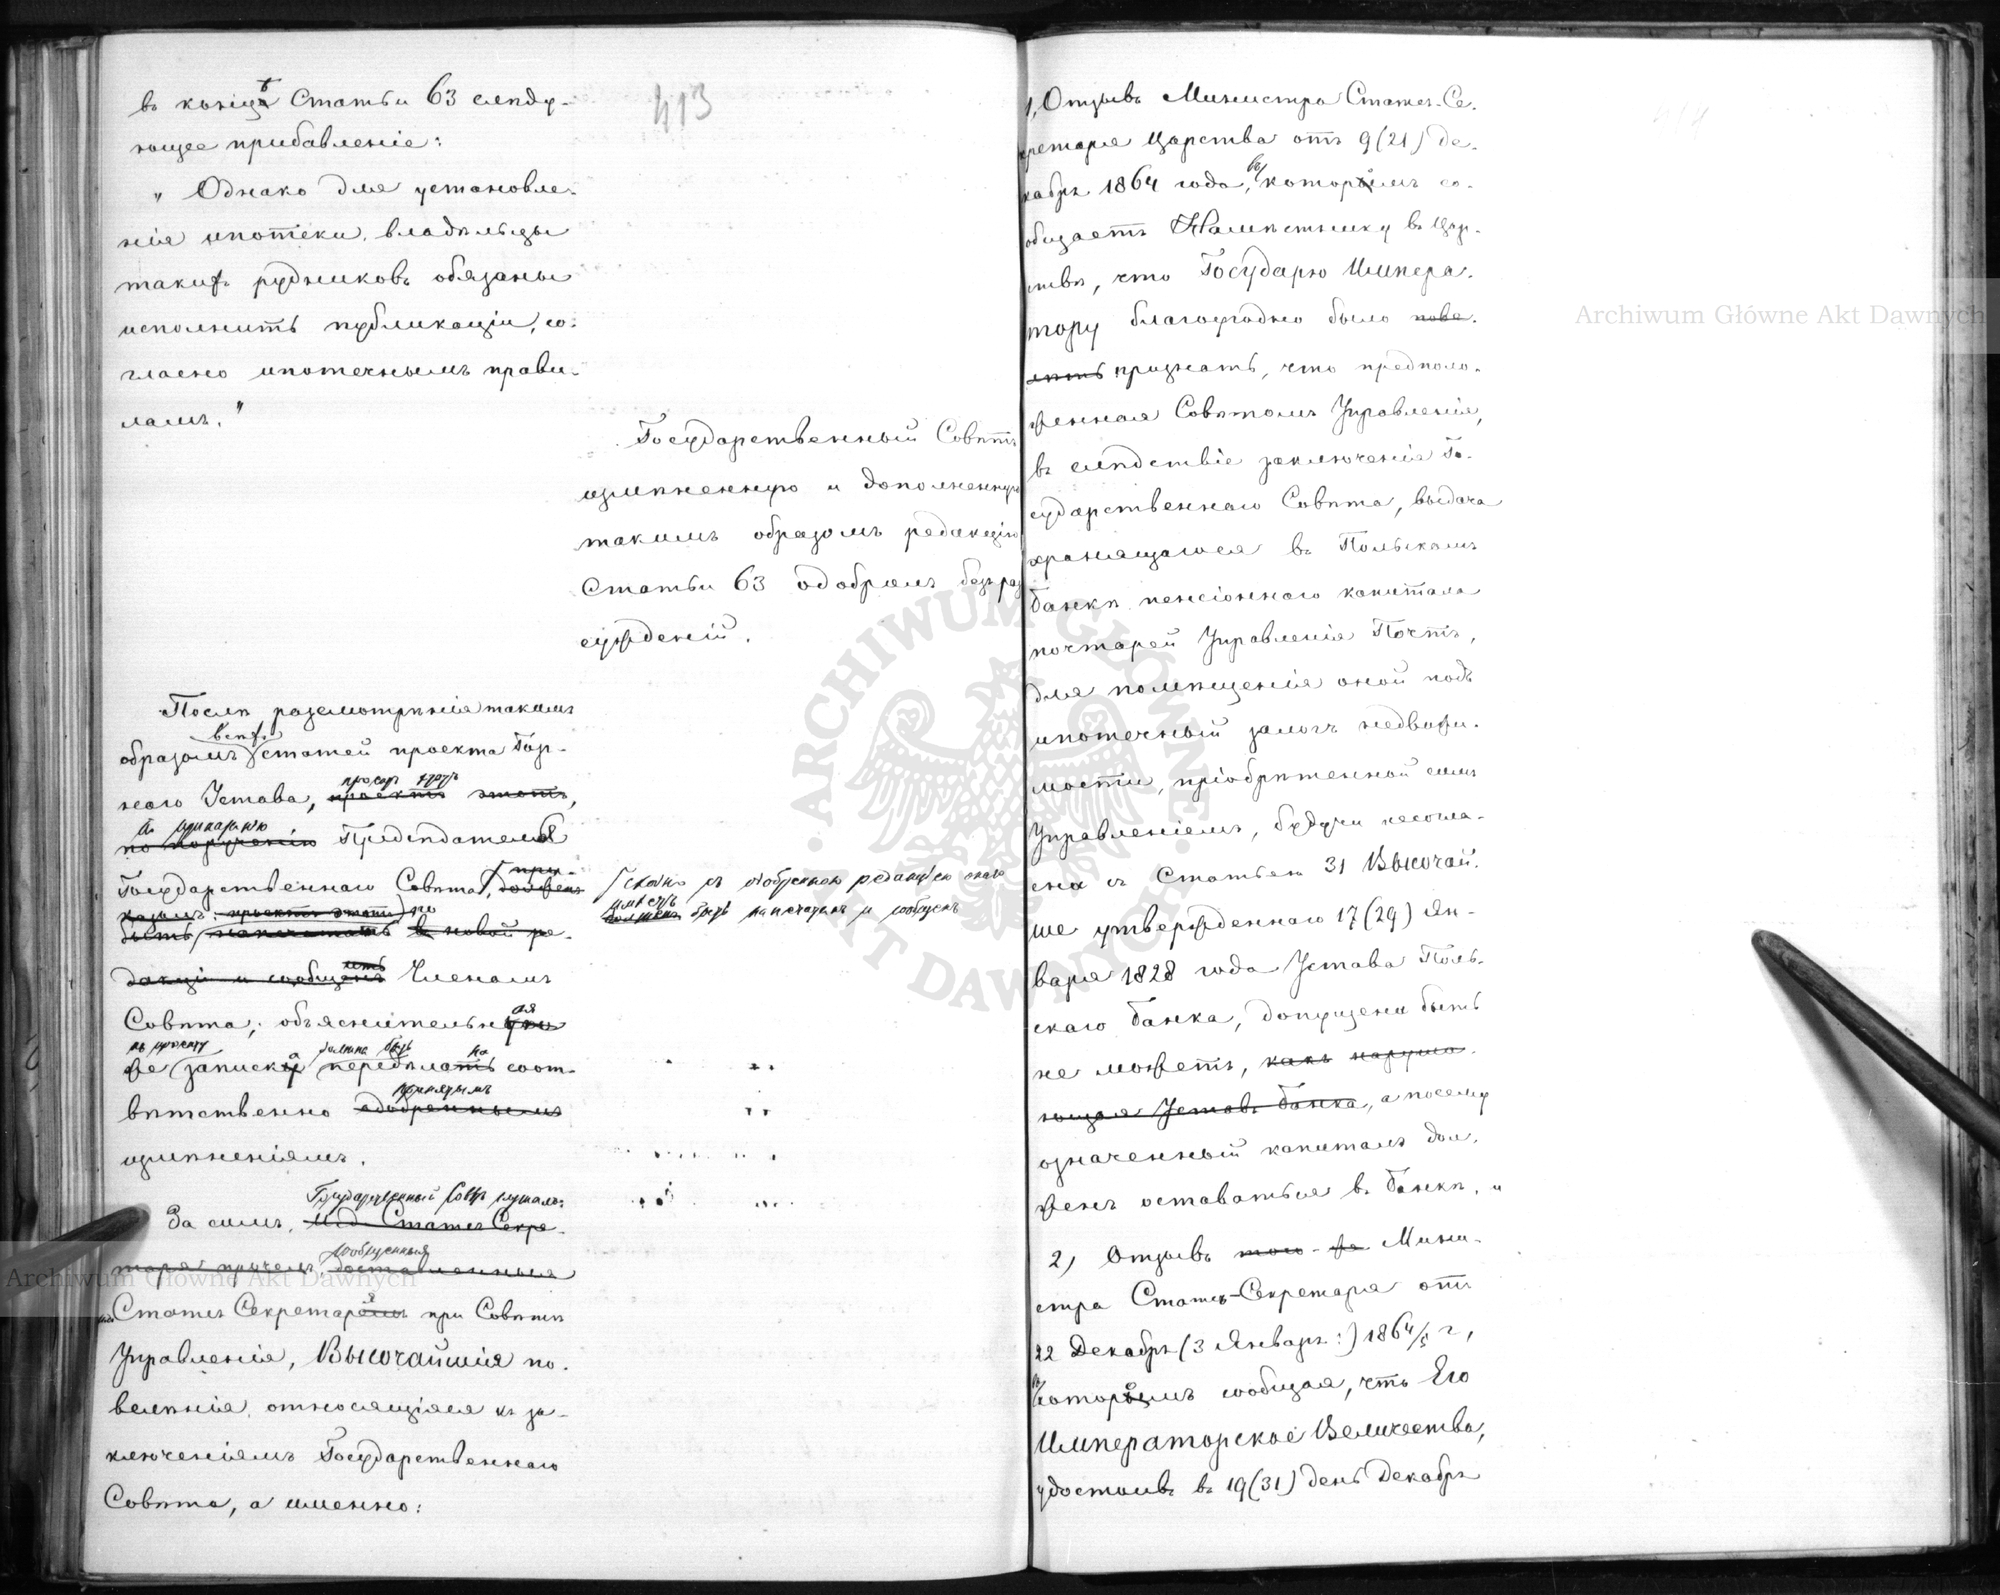 413
въ концѣ Статьи 63 слѣду-
ющее прибавленіе:
„Однако для установле-
нія ипотеки, владѣльцы
такихъ рудниковъ обязаны
исполнить публикаціи, со-
гласно ипотечнымъ прави-
ламъ."
Государственный Совѣтъ
измѣненную и дополненную
такимъ образомъ редакцію
Статьи 63 одобрилъ безъ раз
сужденій.
Послѣ разсмотрѣнія такимъ
всѣхъ
образомъ статей проекта Гор-
наго Устава, проектъ этотъ,
по порученію Предсѣдателя
Государственнаго Совѣта, долженъ
быть напечатанъ въ новой ре-
дакціи и сообщенъ Членамъ
Совѣта; объяснительная
къ проекту должна быть
же записка передѣлана соот-
вѣтственно одобреннымъ
принятымъ
измѣненіямъ.
Государственный Совѣтъ слушалъ:
За симъ, И. д. Статсъ Секре-
таря прочелъ, доставленныя
сообщенныя
Статсъ Секретаремъ при Совѣтѣ
Управленія, Высочайшія по-
велѣнія, относящіяся къ за-
ключеніямъ Государственнаго
Совѣта, а именно:
1, Отзывъ Министра Статсъ-Се-
кретаря Царства отъ 9 (21) Де-
кабря 1864 года, въ которомъ со-
общаетъ Намѣстнику въ Цар-
ствѣ, что Государю Импера-
тору благоугодно было пове-
лѣть признать, что предполо-
женная Совѣтомъ Управленія,
въ слѣдствіе заключенія Го-
сударственнаго Совѣта, выдача
хранящагося въ Польскомъ
Банкѣ пенсіоннаго капитала
почтарей Управленія Почтъ,
для помѣщенія оной подъ
ипотечный залогъ недвижи-
мости, пріобрѣтенной симъ
Управленіемъ, будучи несогла-
сна съ Статьею 31 Высочай-
ше утвержденнаго 17 (29) Ян-
варя 1828 года Устава Поль-
скаго Банка, допущена быть
не можетъ, какъ наруша-
ющая Уставъ Банка, а посему
означенный капиталъ дол-
женъ оставаться въ Банкѣ, и
2, Отзывъ того-же Мини-
стра Статсъ-Секретаря отъ
22 Декабря (3 Января) 1864/5 г,
въ которомъ сообщая, что Его
Императорское Величество,
удостоивъ въ 19 (31) день Декабря
Archiwum Główne Akt Dawnych
Archiwum Główne Akt Dawnych
ARCHIWUM GŁÓWNE AKT DAWNYCH